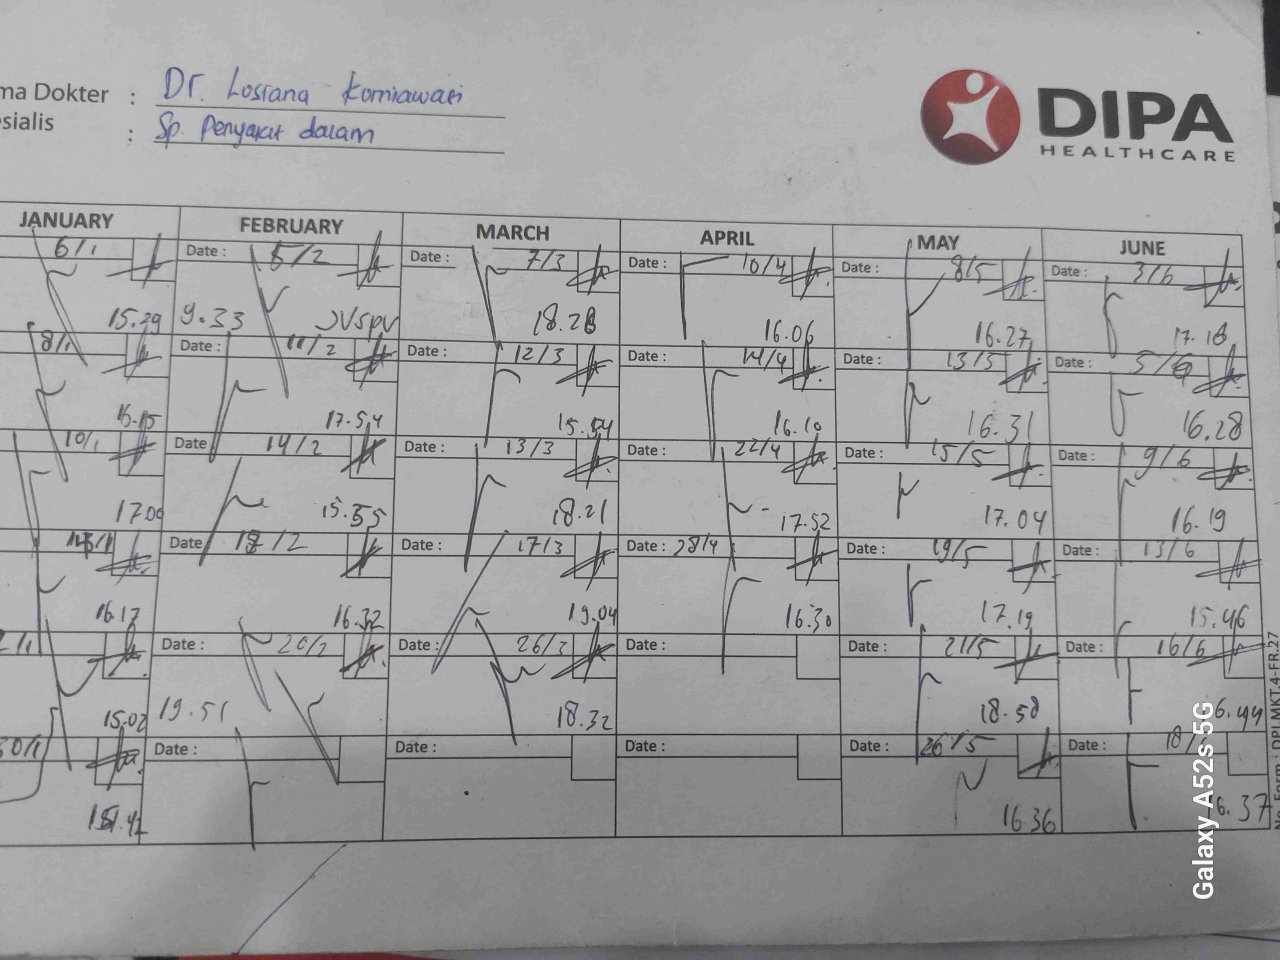 ma Dokter : Dr. Losiana Korniawati
esialis : Sp. Penyakit dalam
DIPA
HEALTHCARE
JANUARY FEBRUARY MARCH APRIL MAY JUNE
6/1 Date : 5/2 Date : 7/3 Date : 10/4 Date : 8/5 Date : 3/6
15.29 9.33 18.28 16.06 16.27 17.18
8/1 Date : 11/2 Date : 12/3 Date : 14/4 Date : 13/5 Date : 5/6
17.54 15.54 16.10 16.31 16.28
10/1 Date 14/2 Date : 13/3 Date : 22/4 Date : 15/5 Date : 9/6
17.00 15.35 18.21 17.52 17.04 16.19
Date 18/2 Date : 17/3 Date : 28/4 Date : 19/5 Date : 13/6
16.17 16.32 19.04 16.30 17.19 15.46
Date : 20/2 Date : 26/3 Date : Date : 21/5 Date : 16/6
15.02 19.51 18.32 18.58 6.44
30/1 Date : Date : Date : 26/5 Date : 18/
16.36 16.37
No Form : DPI.MKT.4-FR.27
Galaxy A52s 5G